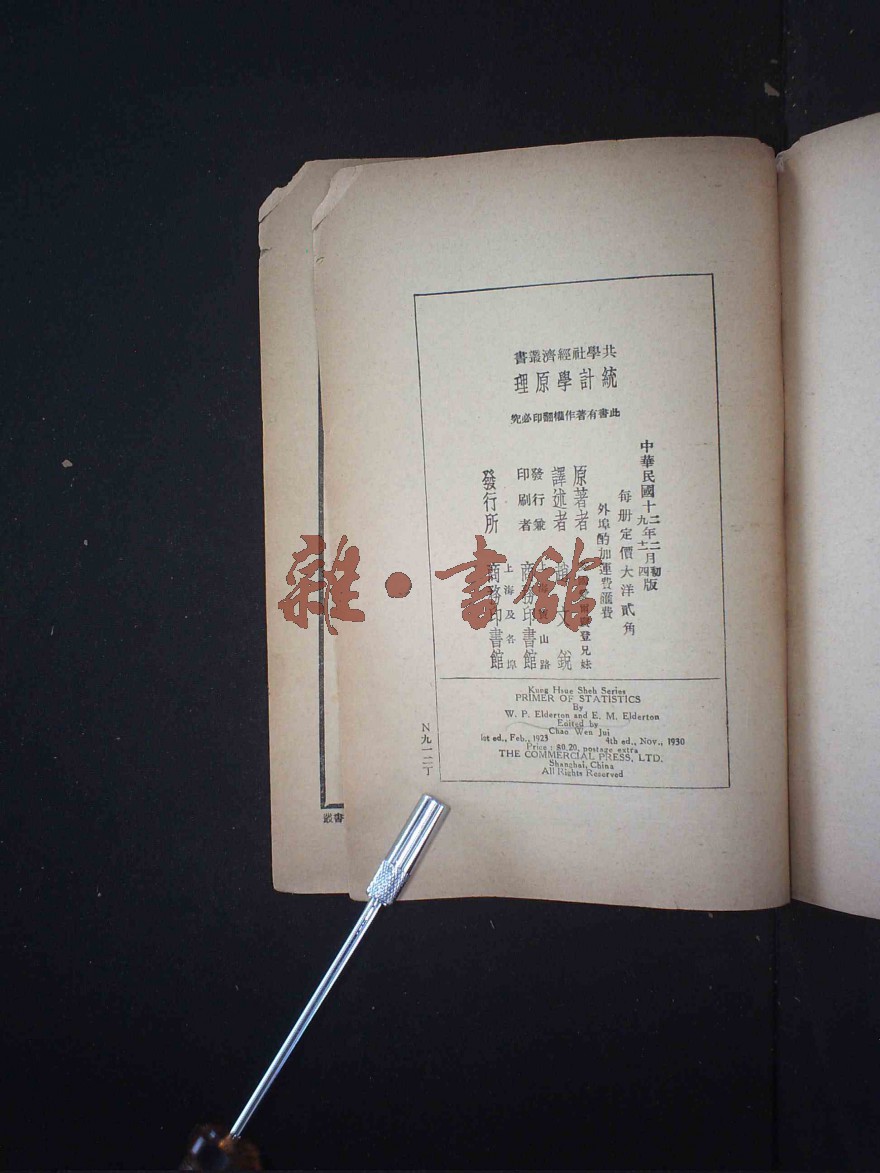 共學社經濟叢書
統計學原理
此書有著作權翻印必究
中華民國十二年二月初版
九 十一 四
每册定價大洋貳角
外埠酌加運費匯費
原著者 登兄妹
譯述者 趙文銳
發行兼 上海寶山路
印刷者 商務印書館
上海及各埠
發行所 商務印書館
Kung Hsue Sheh Series
PRIMER OF STATISTICS
By
W. P. Elderton and E. M. Elderton
Edited by
Chao Wen Jui
1st ed., Feb., 1923 4th ed., Nov., 1930
Price: $0.20, postage extra
THE COMMERCIAL PRESS, LTD.
Shanghai, China
All Rights Reserved
N九一二丁
叢書
雜·書館